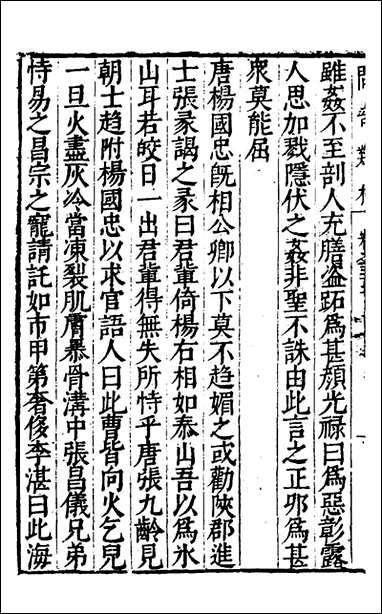 雖姦不至剖人充膳盗跖爲甚顔光祿曰爲惡彰露
人思加戮隱伏之姦非聖不誅由此言之正夘爲甚
衆莫能屈
唐楊國忠旣相公卿以下莫不趋媚之或勸陜郡進
士張彖謁之彖曰君軰倚楊右相如泰山吾以爲氷
山耳若皎日一出君軰得無失所恃乎唐張九齡見
朝士趋附楊國忠以求官語人曰此曹皆向火乞兒
一旦火盡灰冷當凍裂肌膚暴骨溝中張昌儀兄弟
恃易之昌宗之寵請託如市甲第奢侈李湛曰此海